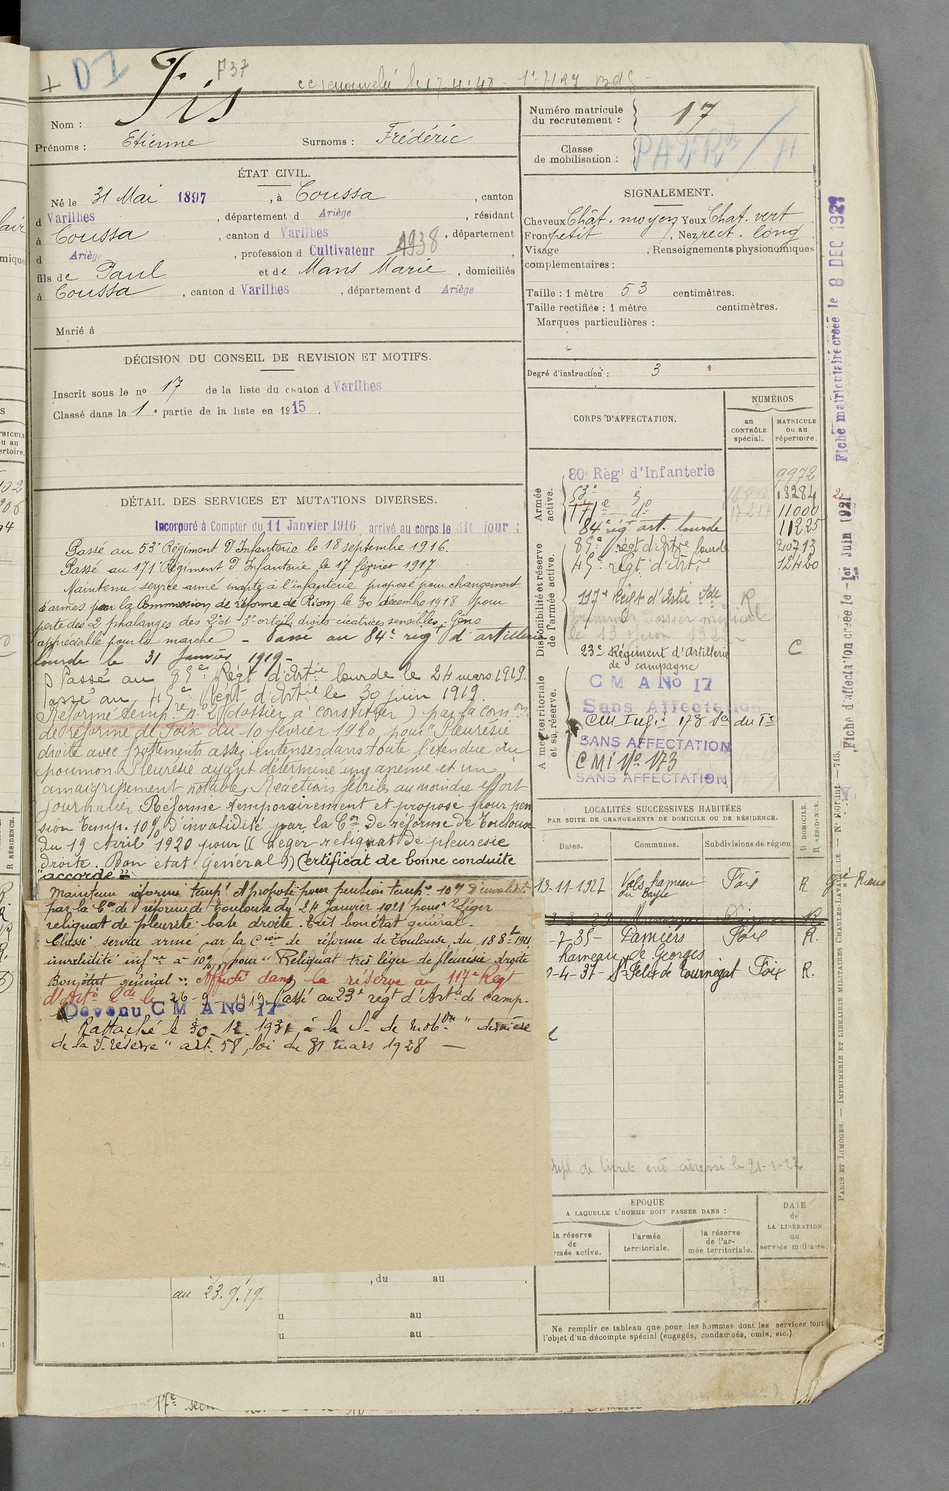 D1
F37
Nom : Fis
Prénoms : Etienne Surnoms : Frédéric
ÉTAT CIVIL.
Né le 31 Mai 1897, à Coussa, canton
d Varilhes, département d Ariège, résidant
à Coussa, canton d Varilhes, département
d Ariège, profession d Cultivateur 1938
fils de Paul et de Mans Marie, domiciliés
à Coussa, canton d Varilhes, département d Ariège
Marié à
DÉCISION DU CONSEIL DE REVISION ET MOTIFS.
Inscrit sous le no 17 de la liste du canton d Varilhes
Classé dans la 1e partie de la liste en 1915.
DÉTAIL DES SERVICES ET MUTATIONS DIVERSES.
Incorporé à Compter du 11 Janvier 1916 arrivé au corps le dit jour ;
Passé au 53e Régiment d'Infanterie le 18 septembre 1916.
Passé au 171e Régiment d'Infanterie le 17 février 1917
Maintenu service armé inapte à l'infanterie proposé pour changement
d'armes par la Commission de réforme de Riom le 30 décembre 1918 pour
perte des 2 phalanges des 2e et 3e orteils droits cicatrices sensibles. Gêne
appréciable pour la marche - Passé au 84e régt d'artillerie
lourde le 31 Janvier 1919 -
Passé au 85e Régt d'Artrie lourde le 24 mars 1919.
Passé au 45e Régt d'Artrie le 30 juin 1919.
Réformé temp. (dossier à constituer) par la Com.on
de réforme de Foix du 10 février 1920, pour "Pleurésie
droite avec frottements assez intenses dans toute l'étendue du
poumon. Pleurésie ayant déterminé une anémie et un
amaigrissement notables. Réaction fébrile au moindre effort
journalier. Réformé temporairement et proposé pour pen
sion temp. 10% d'invalidité par la Con De réforme de Toulouse
du 19 Avril 1920 pour (( léger reliquat de pleurésie
droite. Bon état Général )) Certificat de bonne conduite
"accordé"
Maintenu réforme temp. et proposé pour pension temp. 10% d'invalidité
par la Con de réforme de Toulouse du 24 Janvier 1921 pour "Léger
reliquat de pleurésie base droite. Très bon état général.
Classé service armé par la Con de réforme de Toulouse du 18 8bre 1921
invalidité infre à 10% pour "Reliquat très léger de pleurésie droite
Bon état général". Affecté dans la réserve au 117e Régt
d'Artie Lde le 26-9-1919. Passé au 23e régt d'Artie de camp.
Devenu C M A No 17
Rattaché le 30-12-1931, à la cl. de mobon "dernière
de la 2e réserve" art. 58, loi du 31 mars 1928 -
au 23.9.19.
, du au
u au
u au
Numéro matricule du recrutement : 17
Classe de mobilisation :
SIGNALEMENT.
Cheveux Chât. moyen Yeux Chat. vert
Front petit, Nez rect. long
Visage, Renseignements physionomiques
complémentaires :
Taille : 1 mètre 53 centimètres.
Taille rectifiée : 1 mètre centimètres.
Marques particulières :
Degré d'instruction : 3
CORPS D'AFFECTATION.
NUMÉROS
au CONTRÔLE spécial.
MATRICULE ou au répertoire.
Armée active.
80e Régt d'Infanterie 9972
53e 13284
171e do 11000
84e régt art. lourde 11225
Disponibilité et réserve de l'armée active.
85e régt d'Artrie lourde 20713
45e régt d'Artrie 12420
117e Régt d'Artie Lde
23e Régiment d'Artillerie C
de campagne
Armée territoriale et sa réserve.
C M A No 17
Sans Affectation
SANS AFFECTATION
C M I No 173
SANS AFFECTATION
LOCALITÉS SUCCESSIVES HABITÉES
PAR SUITE DE CHANGEMENTS DE DOMICILE OU DE RÉSIDENCE.
Dates. Communes. Subdivisions de région
D DOMICILE. R RÉSIDENCE.
13-11-1927 Vals hameau Foix R
-7-35- Pamiers Foix R.
hameau De Georges
2-4-37- St Felix de Tournegat Foix R.
EPOQUE
A LAQUELLE L'HOMME DOIT PASSER DANS :
la réserve de l'armée active.
l'armée territoriale.
la réserve de l'armée territoriale.
DATE de LA LIBÉRATION du service militaire.
Ne remplir ce tableau que pour les hommes dont les services font
l'objet d'un décompte spécial (engagés, condamnés, omis, etc.)
Fiche matriculaire créée le 8 DEC 192
Fiche d'affectation créée le 1er Juin 1921
PARIS ET LIMOGES. — IMPRIMERIE ET LIBRAIRIE MILITAIRES CHARLES-LAVAUZELLE